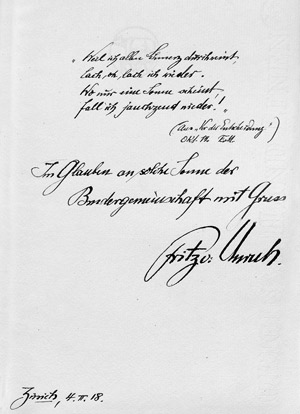 „Weil ich allen Schmerz durchweint,
lach, oh, lach ich wieder.
Wo nur eine Sonne scheint,
fall ich jauchzend nieder!"
(Aus „Vor der Entscheidung")
Okt. 14.
Im Glauben an solche Sonne der
Brudergemeinschaft mit Gruss
Fritz v. Unruh.
Zürich, 4. II. 18.